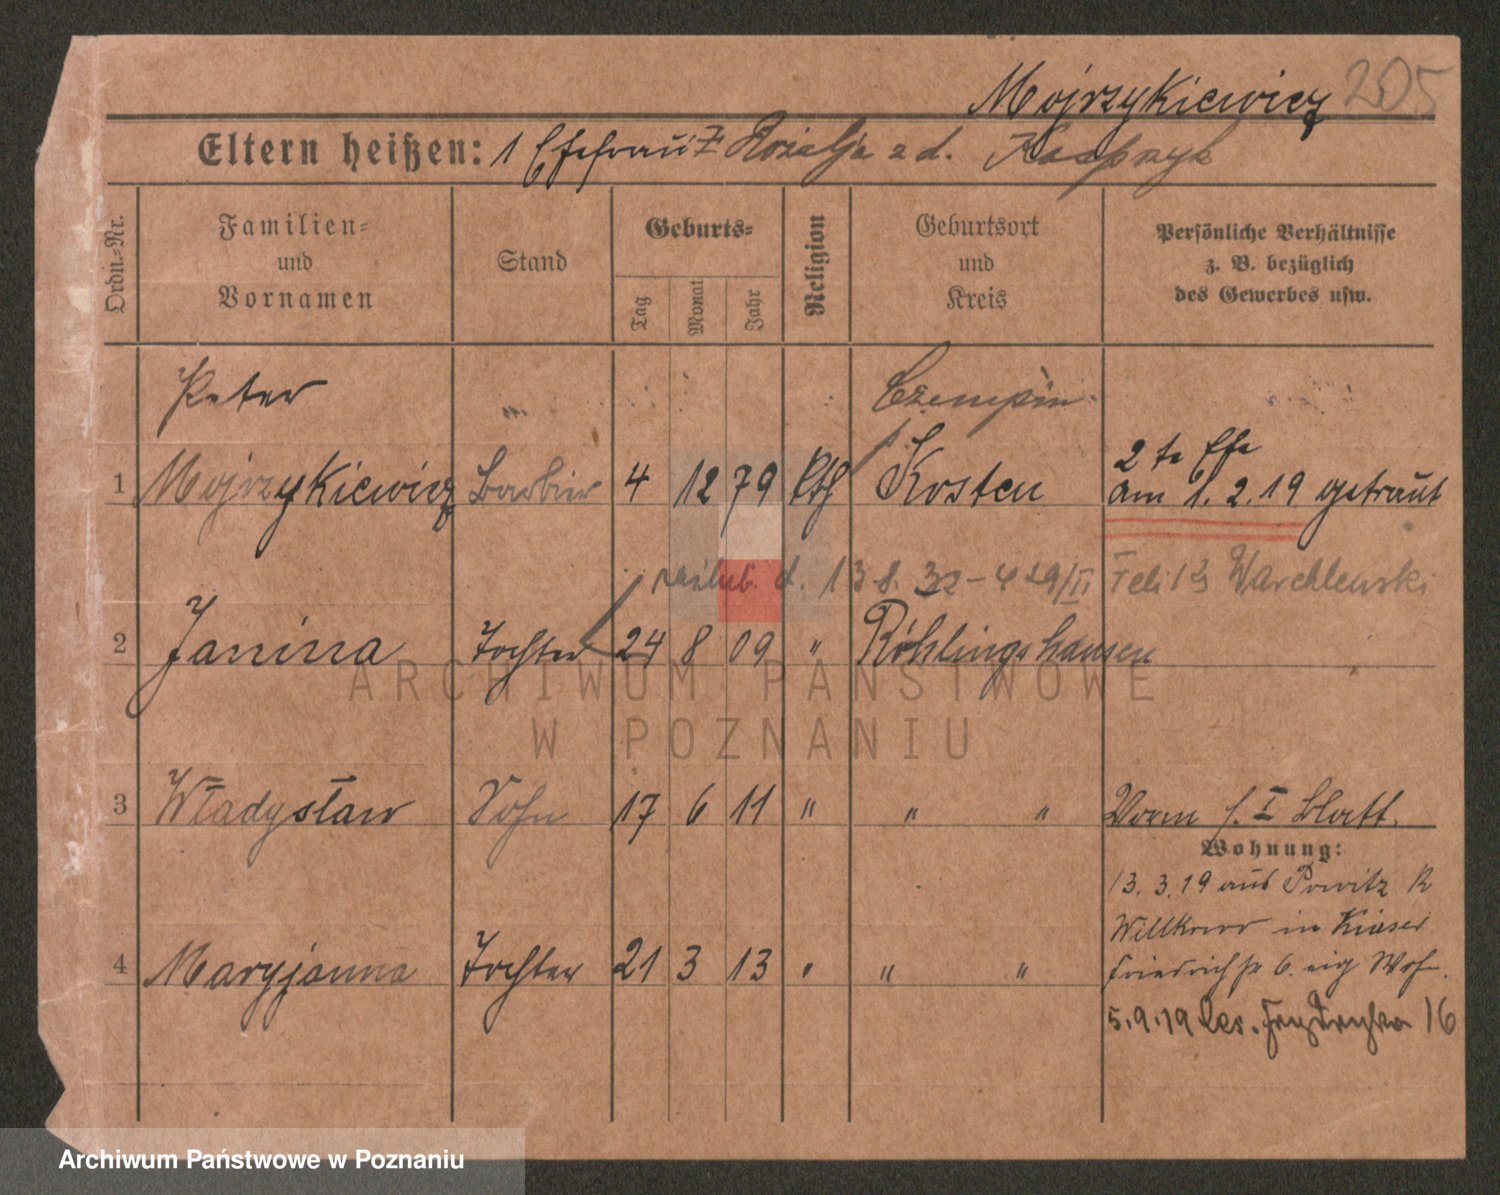 Mojrzykiewicz 205
Eltern heißen: 1 Ehefrau Rozalja z d. Kasprzyk
Ordn.-Nr.
Familien- und Vornamen
Stand
Geburts-
Tag
Monat
Jahr
Religion
Geburtsort und Kreis
Persönliche Verhältnisse
z. B. bezüglich
des Gewerbes usw.
Peter Czempin
1 Mojrzykiewicz Barbier 4 12 79 kth Kosten
2te Ehe
am 1. 2. 19 getraut
zaślub. d. 13 8. 32 - 429/II Feliks Warchlewski
2 Janina Tochter 24 8 09 " Röhlinghausen
3 Władysław Sohn 17 6 11 " " " Vorm s. I Blatt.
Wohnung:
13. 3. 19 aus Powitz K
4 Maryjanna Tochter 21 3 13 " " "
Willkowo in Kaiser
Friedrich str 6. eig Wohn.
5.9.19 Fryderyka 16
ARCHIWUM PAŃSTWOWE
W POZNANIU
Archiwum Państwowe w Poznaniu